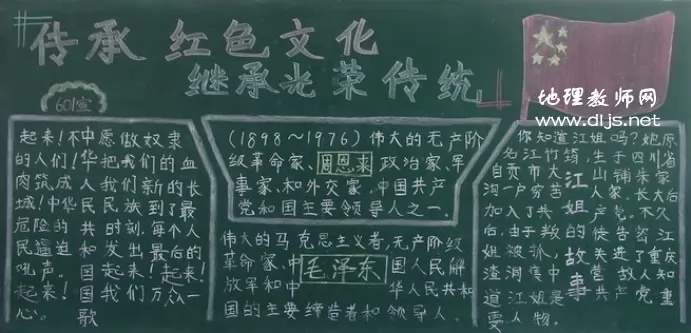 传承 红色文化
继承光荣传统
601宣
地理教师网
www.dljs.net
中华人民共和国国歌
起来!不愿做奴隶
的人们!把我们的血
肉筑成我们新的长
城!中华民族到了最
危险的时刻,每个人
民逼迫发出最后的
吼声。起来!起来!
起来!我们万众一
心。
(1898~1976)伟大的无产阶
级革命家、周恩来 政治家、军
事家、和外交家,中国共产
党和国主要领导人之一.
伟大的马克思主义者,无产阶级
革命家、中国人民解
毛泽东
放军和中华人民共和
国的主要缔造者和领导人.
江姐的故事
你知道江姐吗?她原
名江竹筠,生于四川省
自贡市大山铺朱家
沟一户穷苦人家.长大后
加入了共产党。不久
后,由于叛徒告密,江
姐被抓,关进了重庆
渣洞集中营
道江姐是共产党重
要人物.